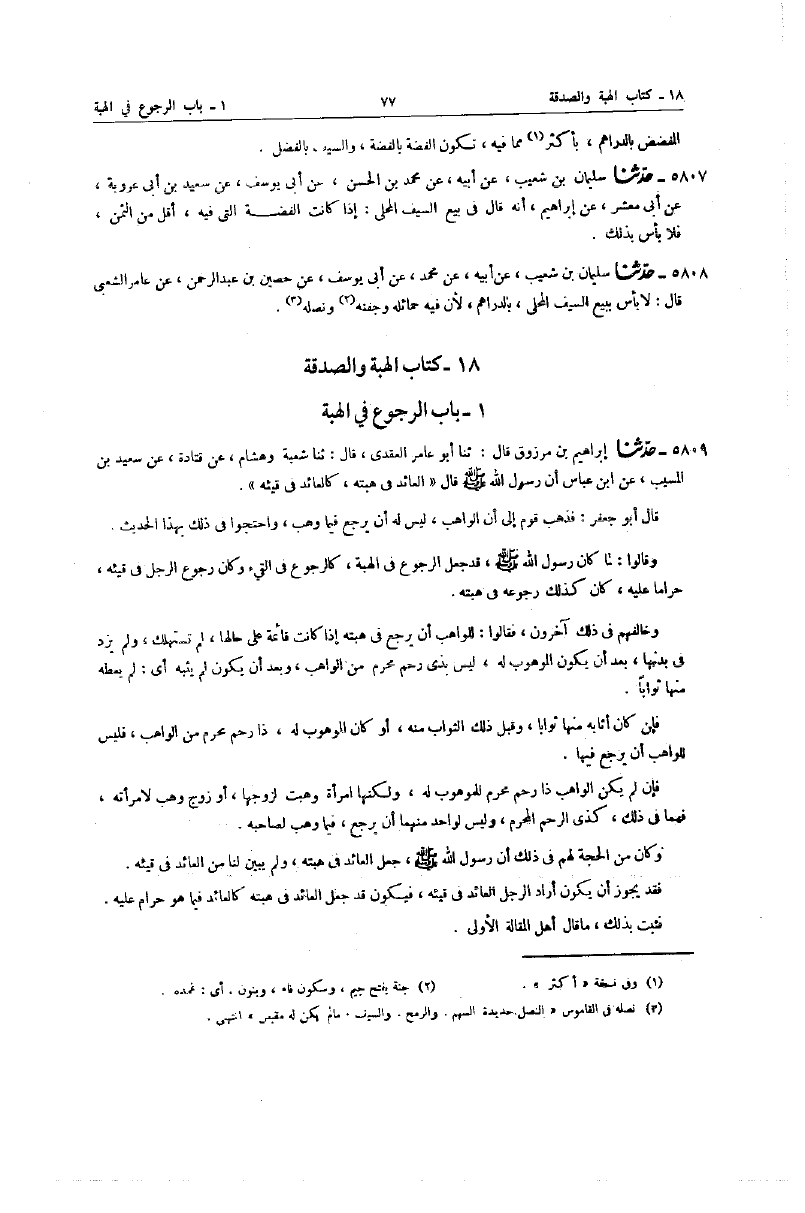 ١٨ - كتاب الهبة والصدقة ٧٧ ١ - باب الرجوع في الهبة
المفضض بالدراهم ، بأكثر(١) مما فيه ، تكون الفضة بالفضة ، والسيف بالفضل .
٥٨٠٧ - حدّثنا سليمان بن شعيب ، عن أبيه ، عن محمد بن الحسن ، عن أبى يوسف ، عن سعيد بن أبى عروبة ،
عن أبى معشر ، عن إبراهيم ، أنه قال فى بيع السيف المحلى : إذا كانت الفضــــة التى فيه ، أقل من الثمن ،
فلا بأس بذلك .
٥٨٠٨ - حدّثنا سليمان بن شعيب ، عن أبيه ، عن محمد ، عن أبى يوسف ، عن حصين بن عبد الرحمن ، عن عامر الشعبى
قال : لا بأس ببيع السيف المحلى ، بالدراهم ، لأن فيه حمائله وجفنه(٢) ونصله(٣) .
١٨ - كتاب الهبة والصدقة
١ - باب الرجوع في الهبة
٥٨٠٩ - حدّثنا إبراهيم بن مرزوق قال : ثنا أبو عامر العقدى ، قال : ثنا شعبة وهشام ، عن قتادة ، عن سعيد بن
المسيب ، عن ابن عباس أن رسول الله ﷺ قال « العائد فى هبته ، كالعائد فى قيئه » .
قال أبو جعفر : فذهب قوم إلى أن الواهب ، ليس له أن يرجع فيما وهب ، واحتجوا فى ذلك بهذا الحديث .
وقالوا : لما كان رسول الله ﷺ ، قد جعل الرجوع فى الهبة ، كالرجوع فى القيء وكان رجوع الرجل فى قيئه ،
حراما عليه ، كان كذلك رجوعه فى هبته .
وخالفهم فى ذلك آخرون ، فقالوا : للواهب أن يرجع فى هبته إذا كانت قائمة على حالها ، لم تستهلك ، ولم يزد
فى بدنها ، بعد أن يكون الموهوب له ، ليس بذى رحم محرم من الواهب ، وبعد أن يكون لم يثبه أى : لم يعطه
منها ثواباً .
فإن كان أثابه منها ثوابا ، وقبل ذلك الثواب منه ، أو كان الموهوب له ، ذا رحم محرم من الواهب ، فليس
للواهب أن يرجع فيها .
فإن لم يكن الواهب ذا رحم محرم للموهوب له ، ولكنها امرأة وهبت لزوجها ، أو زوج وهب لامرأته ،
فهما فى ذلك ، كذى الرحم المحرم ، وليس لواحد منهما أن يرجع ، فيما وهب لصاحبه .
وكان من الحجة لهم فى ذلك أن رسول الله ﷺ ، جعل العائد فى هبته ، ولم يبين لنا من العائد فى قيئه .
فقد يجوز أن يكون أراد الرجل العائد فى قيئه ، فيكون قد جعل العائد فى هبته كالعائد فيما هو حرام عليه .
فثبت بذلك ، ما قال أهل المقالة الأولى .
(١) وفى نسخة « أكثر » . (٢) جفنة بفتح جيم ، وسكون فاء ، وبنون . أى : غمده .
(٣) نصله فى القاموس « النصل حديدة السهم . والرمح . والسيف . مالم يكن له مقبس » انتهى .